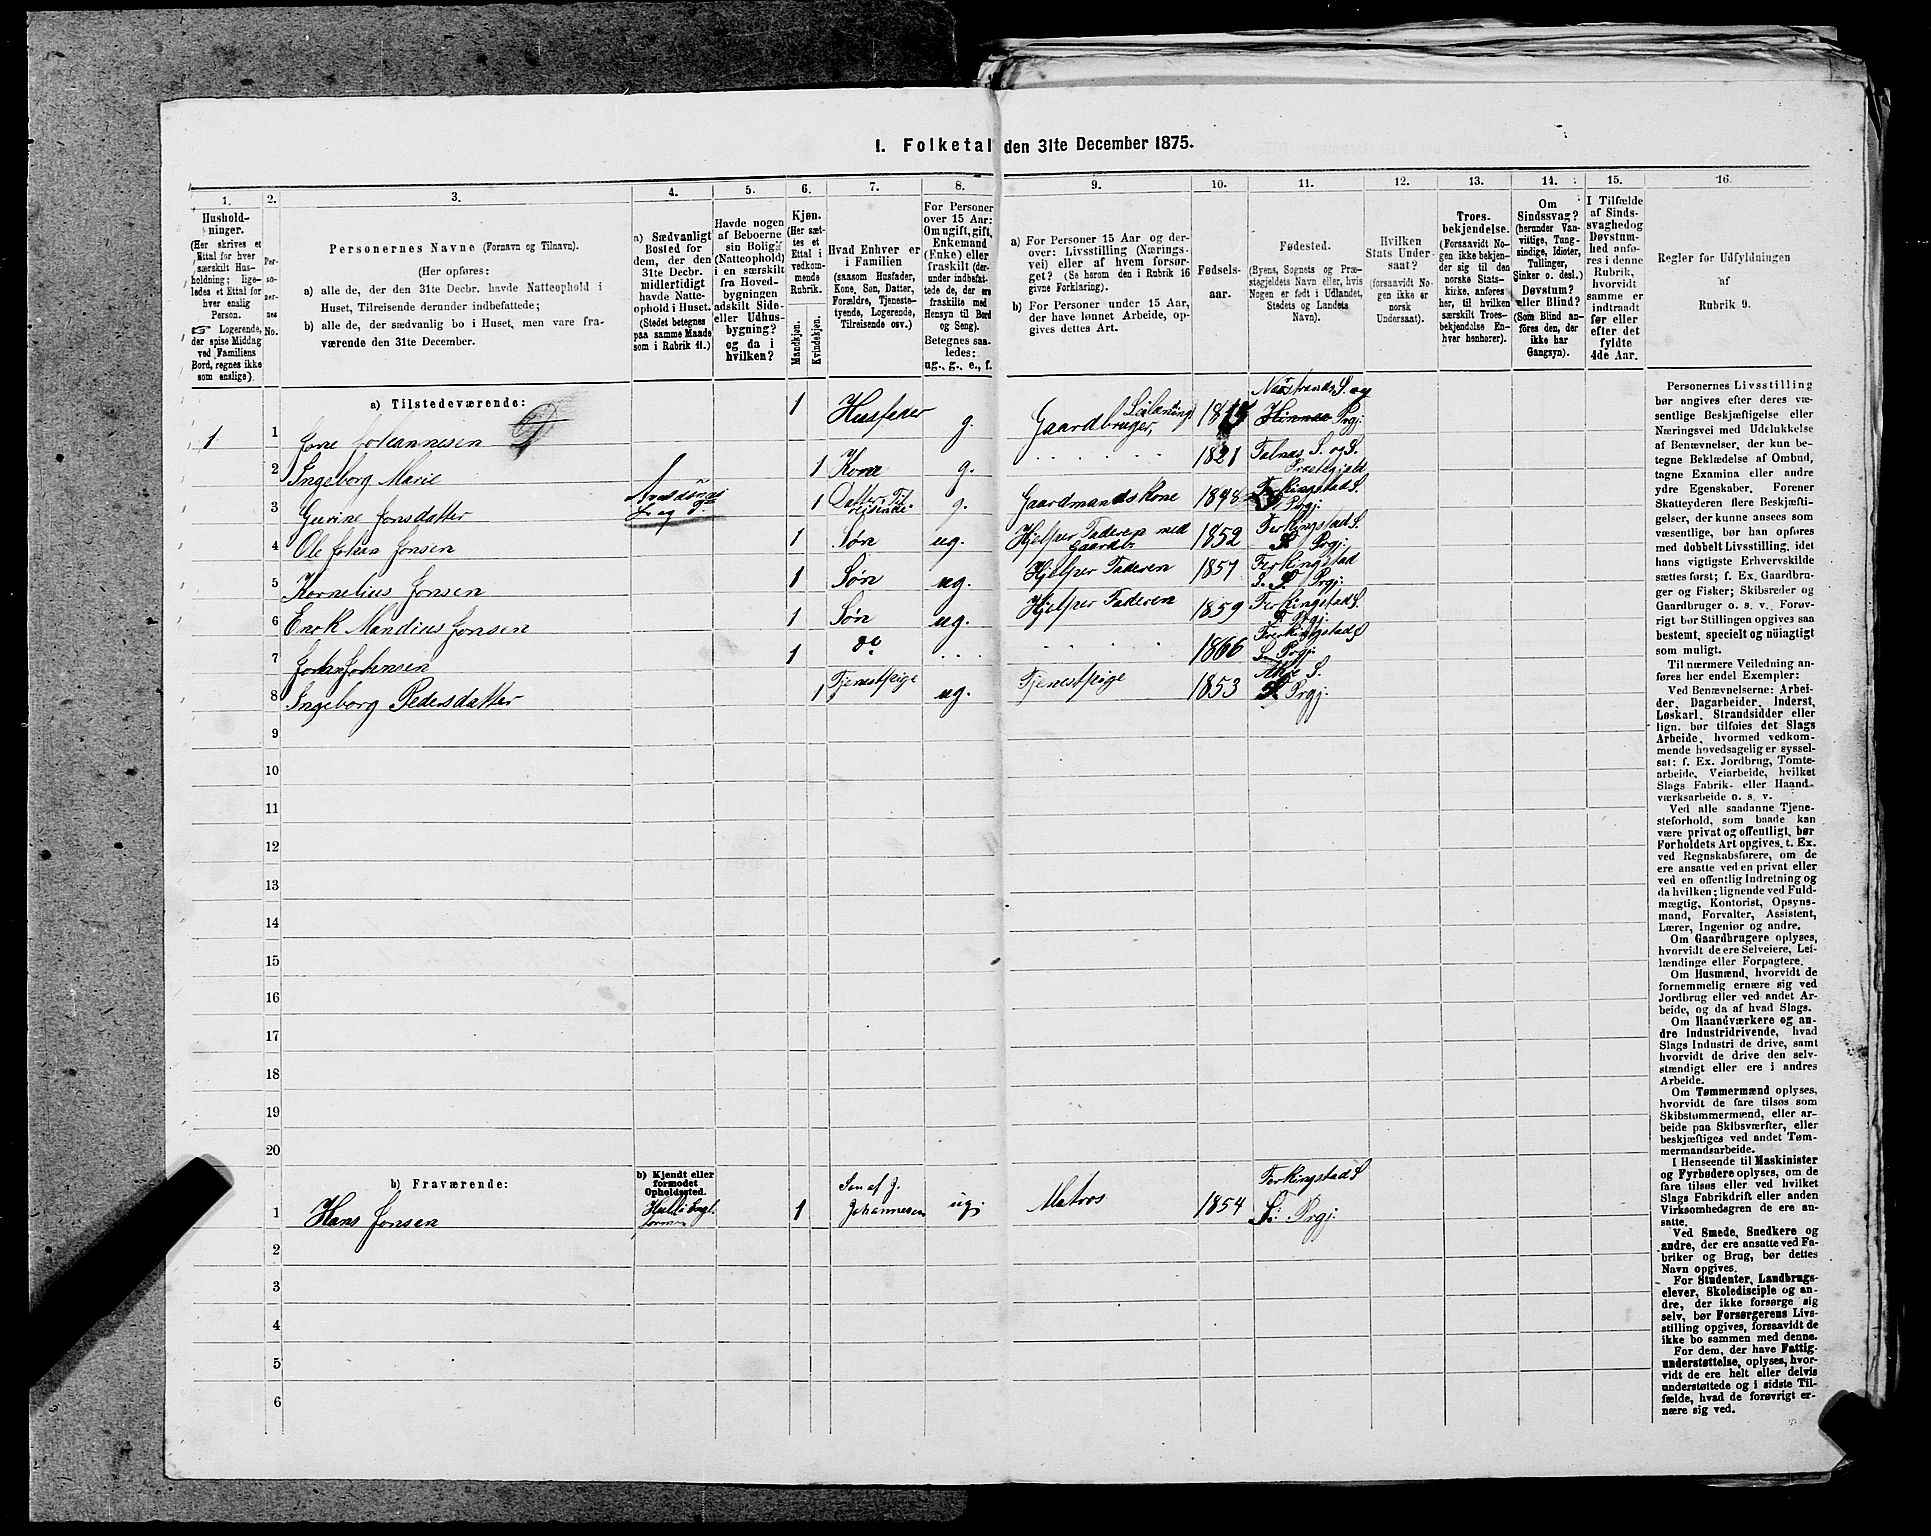 I. Folketal den 31te December 1875.
1. 2. 3. 4. 5. 6. 7. 8. 9. 10. 11. 12. 13. 14. 15. 16.
Hushold-
ninger.
(Her skrives et
Ettal for hver
særskilt Hus-
holdning; lige-
ledes et Ettal for
hver enslig
Person.
☞ Logerende,
der spise Middag
ved Familiens
Bord, regnes ikke
som enslige).
Per-
so-
ner-
nes
No.
Personernes Navne (Fornavn og Tilnavn).
(Her opføres:
a) alle de, der den 31te Decbr. havde Natteophold i
Huset, Tilreisende derunder indbefattede;
b) alle de, der sædvanlig bo i Huset, men vare fra-
værende den 31te December.
a) Sædvanligt
Bosted for
dem, der den
31te Decbr.
midlertidigt
havde Natte-
ophold i Huset.
(Stedet betegnes
paa samme Maade
som i Rubrik 11.)
Havde nogen
af Beboerne
sin Bolig
(Natteophold)
i en særskilt
fra Hoved-
bygningen
adskilt Side-
eller Udhus-
bygning?
og da i
hvilken?
Kjøn.
(Her sæt-
tes et
Ettal i
vedkom-
mende
Rubrik.
Mandkjøn.
Kvindekjøn.
Hvad Enhver er
i Familien
(saasom Husfader,
Kone, Søn, Datter,
Forældre, Tjeneste-
tyende, Logerende,
Tilreisende osv.)
For Personer
over 15 Aar:
Om ugift, gift,
Enkemand
(Enke) eller
fraskilt (der-
under indbefat-
tede de, der ere
fraskilte med
Hensyn til Bord
og Seng).
Betegnes saa-
ledes:
ug., g., e., f.
a) For Personer 15 Aar og der-
over: Livsstilling (Nærings-
vei) eller af hvem forsør-
get? (Se herom den i Rubrik 16
givne Forklaring).
b) For Personer under 15 Aar,
der have lønnet Arbeide, op-
gives dettes Art.
Fødsels-
aar.
Fødested.
(Byens, Sognets og Præ-
stegjeldets Navn eller, hvis
Nogen er født i Udlandet,
Stedets og Landets
Navn).
Hvilken
Stats Under-
saat?
(forsaavidt No-
gen ikke er
norsk
Undersaat).
Troes-
bekjendelse.
(Forsaavidt No-
gen ikke bekjen-
der sig til den
norske Stats-
kirke, anføres
her, til hvilken
særskilt Troes-
bekjendelse En-
hver henhører).
Om
Sindssvag?
(herunder Van-
vittige, Tung-
sindige, Idioter,
Tullinger,
Sinker o. desl.)
Døvstum?
eller Blind?
(Som Blind an-
føres den, der
ikke har
Gangsyn).
I Tilfælde
af Sinds-
svaghed og
Døvstum-
hed anfø-
res i denne
Rubrik,
hvorvidt
samme er
indtraadt
før eller
efter det
fyldte
4de Aar.
Regler for Udfyldningen
af
Rubrik 9.
a) Tilstedeværende:
1 1 Jone Johannesen 1 Husfader g. Gaardbruger, Leilænding 181 S. og Prgj.
2 Ingeborg Marie 1 Kone g. 1821 Falnæs S. og S. Præstegjæld
3 Gurine Jonsdatter 1 Datter, Tilreisende g. Gaardmandskone 1848 Ferkingstad S. Prgj.
4 Ole Johan Jonsen 1 Søn ug. Hjelper Faderen med Gaardbr. 1852 Ferkingstad S. S. Prgj.
5 Kornelius Jonsen 1 Søn ug. Hjelper Faderen 1857 Ferkingstad S. S. Prgj.
6 Enok Mandius Jonsen 1 Søn ug. Hjelper Faderen 1859 Ferkingstad S. S. Prgj.
7 Johan Johnsen 1 do 1866 Ferkingstad S. S. Prgj.
8 Ingeborg Pedersdatter 1 Tjenestpige ug. Tjenestpige 1853 S. S. Prgj.
9
10
11
12
13
14
15
16
17
18
19
20
b) Fraværende:
b) Kjendt eller
formodet
Opholdssted.
1 Hans Jonsen 1 Søn af J. Johannesen ug. Matros 1854 Ferkingstad S. S. Prgj.
2
3
4
5
6
Personernes Livsstilling
bør angives efter deres væ-
sentlige Beskjæftigelse eller
Næringsvei med Udelukkelse
af Benævnelser, der kun be-
tegne Beklædelse af Ombud,
tagne Examina eller andre
ydre Egenskaber. Forener
Skatteyderen flere Beskjæfti-
gelser, der kunne ansees som
væsentlige, bør han opføres
med dobbelt Livsstilling, idet
hans vigtigste Erhvervskilde
sættes først; f. Ex. Gaardbru-
ger og Fisker; Skibsreder og
Gaardbruger o. s. v. Forøv-
rigt bør Stillingen opgives saa
bestemt, specielt og nöiagtigt
som muligt.
Til nærmere Veiledning an-
føres her endel Exempler:
Ved Benævnelserne: Arbei-
der, Dagarbeider, Inderst,
Løskarl, Strandsidder eller
lign. bør tilføies det Slags
Arbeide, hvormed vedkom-
mende hovedsagelig er syssel-
sat: f. Ex. Jordbrug, Tomte-
arbeide, Veiarbeide, hvilket
Slags Fabrik- eller Haand-
værksarbeide o. s. v.
Ved alle saadanne Tjene-
steforhold, som baade kan
være privat og offentligt, bør
Forholdets Art opgives, t. Ex.
ved Regnskabsførere, om de
ere ansatte ved en privat eller
ved en offentlig Indretning og
da hvilken; lignende ved Fuld-
mægtig, Kontorist, Opsyns-
mand, Forvalter, Assistent,
Lærer, Ingeniør og andre.
Om Gaardbrugere oplyses,
hvorvidt de ere Selveiere, Lei-
lændinge eller Forpagtere.
Om Husmænd, hvorvidt de
fornemmelig ernære sig ved
Jordbrug eller ved andet Ar-
beide, og da af hvad Slags.
Om Haandværkere og an-
dre Industridrivende, hvad
Slags Industri de drive, samt
hvorvidt de drive den selv-
stændigt eller ere i andres
Arbeide.
Om Tømmermænd oplyses,
hvorvidt de fare tilsøs som
Skibstømmermænd, eller ar-
beide paa Skibsværfter, eller
beskjæftiges ved andet Tøm-
mermandsarbeide.
I Henseende til Maskinister
og Fyrbødere oplyses, om de
fare tilsøs eller ved hvilket
Slags Fabrikdrift eller anden
Virksomhedsgren de ere an-
satte.
Ved Smede, Snedkere og
andre, der ere ansatte ved Fa-
briker og Brug, bør dettes
Navn opgives.
For Studenter, Landbrugs-
elever, Skoledisciple og an-
dre, der ikke forsørge sig
selv, bør Forsørgerens Livs-
stilling opgives, forsaavidt de
ikke bo sammen med denne.
For dem, der have Fattig-
understøttelse, oplyses, hvor-
vidt de ere helt eller delvis
understøttede og i sidste Til-
fælde, hvad de forøvrigt er-
nære sig ved.